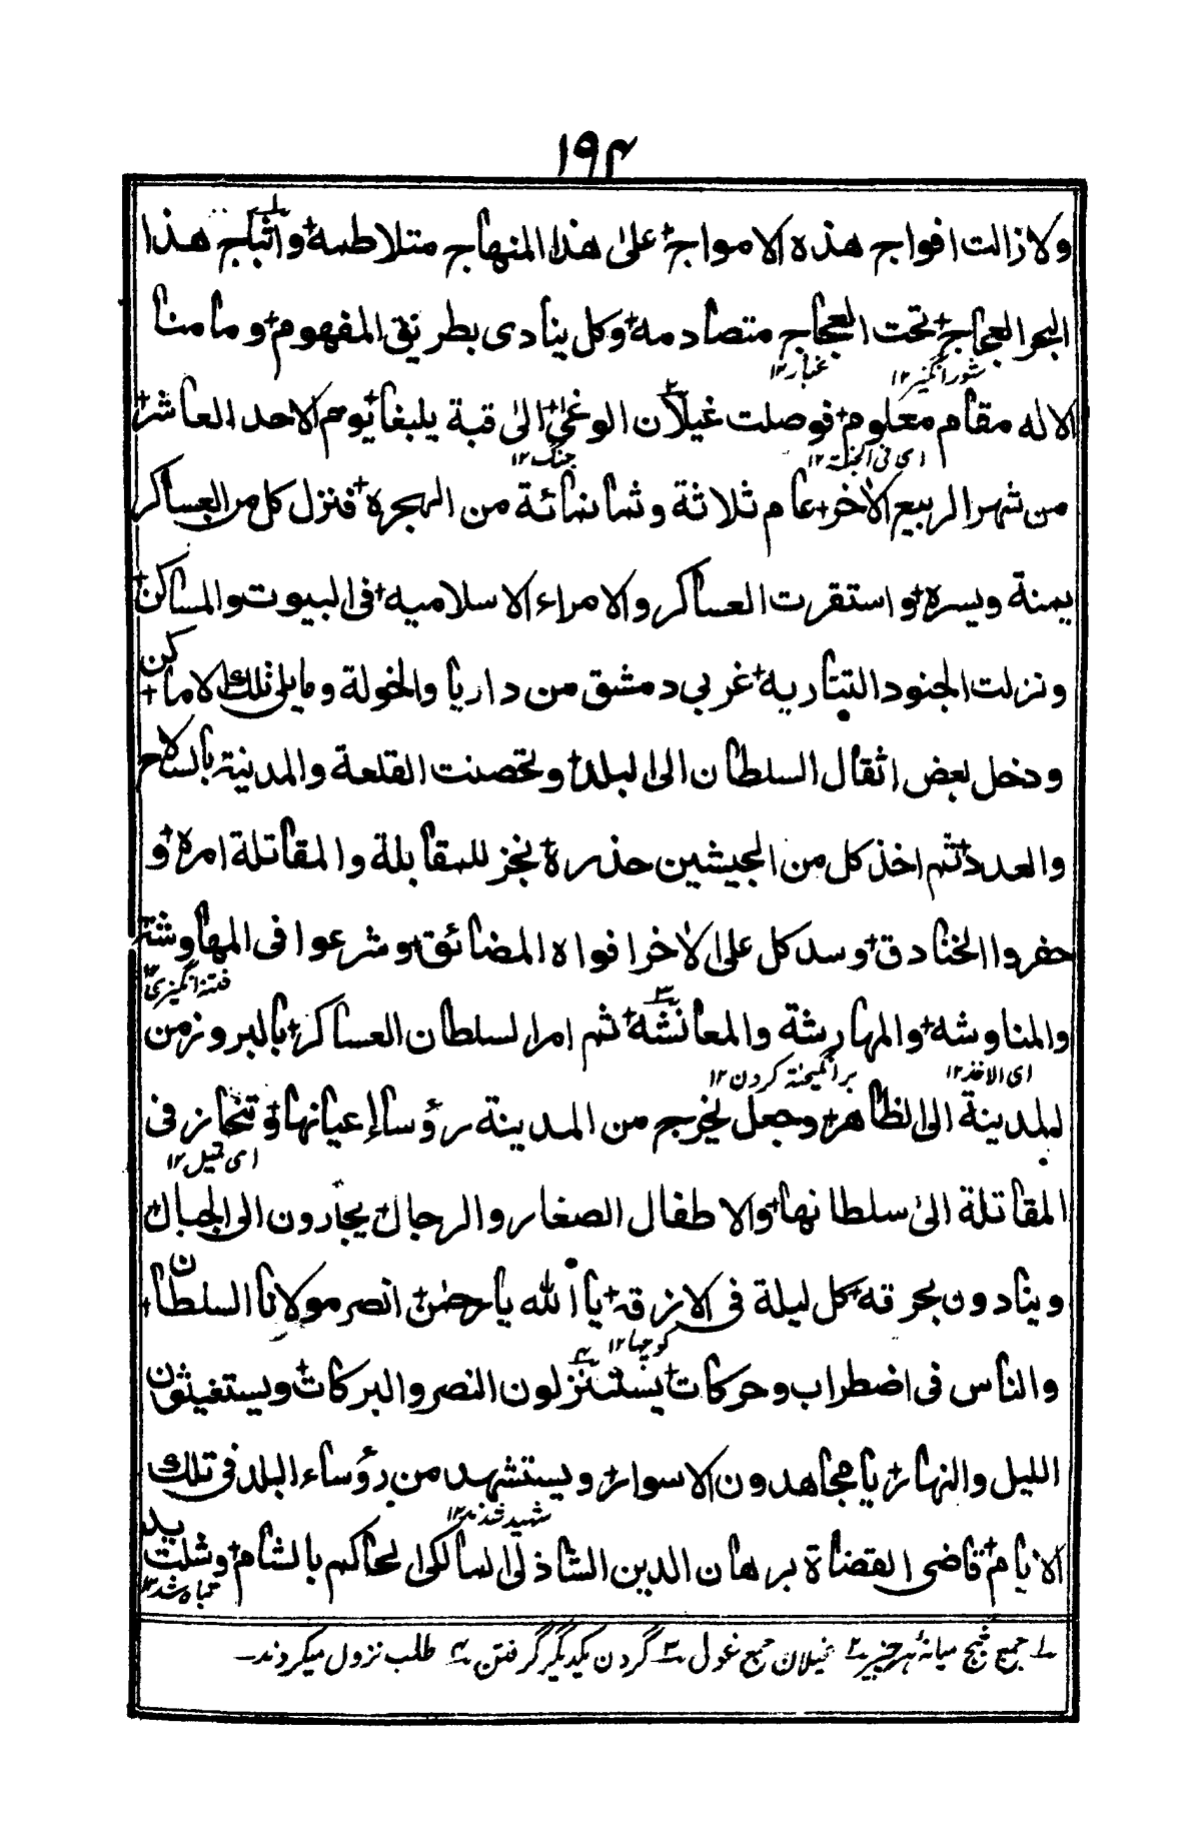 ۱۹۴
ولا زالت افواج هذه الامواج+ علی هذا المنهاج متلاطمه+ واثباج هذا
البحر العجاج+ تحت العجاج متصادمه+ وكل ينادى بطريق المفهوم+ وما منا
شور انگیز ۱۲ غبار ۱۲
الا له مقام معلوم+ فوصلت غيلان الوغى+ الى قبة يلبغا+ يوم الاحد العاشر+
ای فی الجنة ۱۲ جنگ ۱۲
من شهر الربيع الاخر+ عام ثلاثة وثمانمائة من الهجرة+ فنزل كل من العساكر
يمنة ويسرة+ واستقرت العساكر والامراء الاسلاميه+ فى البيوت والمساكن+
ونزلت الجنود التتاريه+ غربى دمشق من داريا والخولة وما يلى تلك الاماكن+
ودخل بعض اثقال السلطان الى البلد+ وتحصنت القلعة والمدينة بالسلاح
والعدد+ ثم اخذ كل من الجيشين حذره+ نجز للمقابلة والمقاتلة امره+ و
حفروا الخنادق+ وسد كل على الاخر افواه المضائق+ وشرعوا فى المهاوشة+
فتنه انگیزی ۱۲
والمناوشه+ والمهارشة والمعانشه+ ثم امر السلطان العساكر+ بالبروز من
ای الاخذ ۱۲ برانگیخته کردن ۱۲
المدينة الى الظاهر+ وجعل يخرج من المدينة رؤسا اعيانها+ وتنحاز فى
ای تمیل ۱۲
المقاتلة الى سلطانها+ والاطفال الصغار والرجال+ يجارون الى الجبال+
وينادون بحرقه+ كل ليلة فى الازقه+ يا الله يا رحمن+ انصر مولانا السلطان+
کوچها ۱۲
والناس فى اضطراب وحركات+ يستنزلون النصر والبركات+ ويستغيثون
الليل والنهار+ يا مجاهدون الاسوار+ ويستشهد من رؤساء البلد فى تلك
شهید شدند ۱۲
الايام+ قاضى القضاة برهان الدين الشاذلى المالكى الحاكم بالشام+ وشلت يد
تباه شد ۱۲
۱ جمع ثبج میانۀ هر چیز ۲ غیلان جمع غول ۳ گردن یکدیگر گرفتن ۴ طلب نزول میکردند